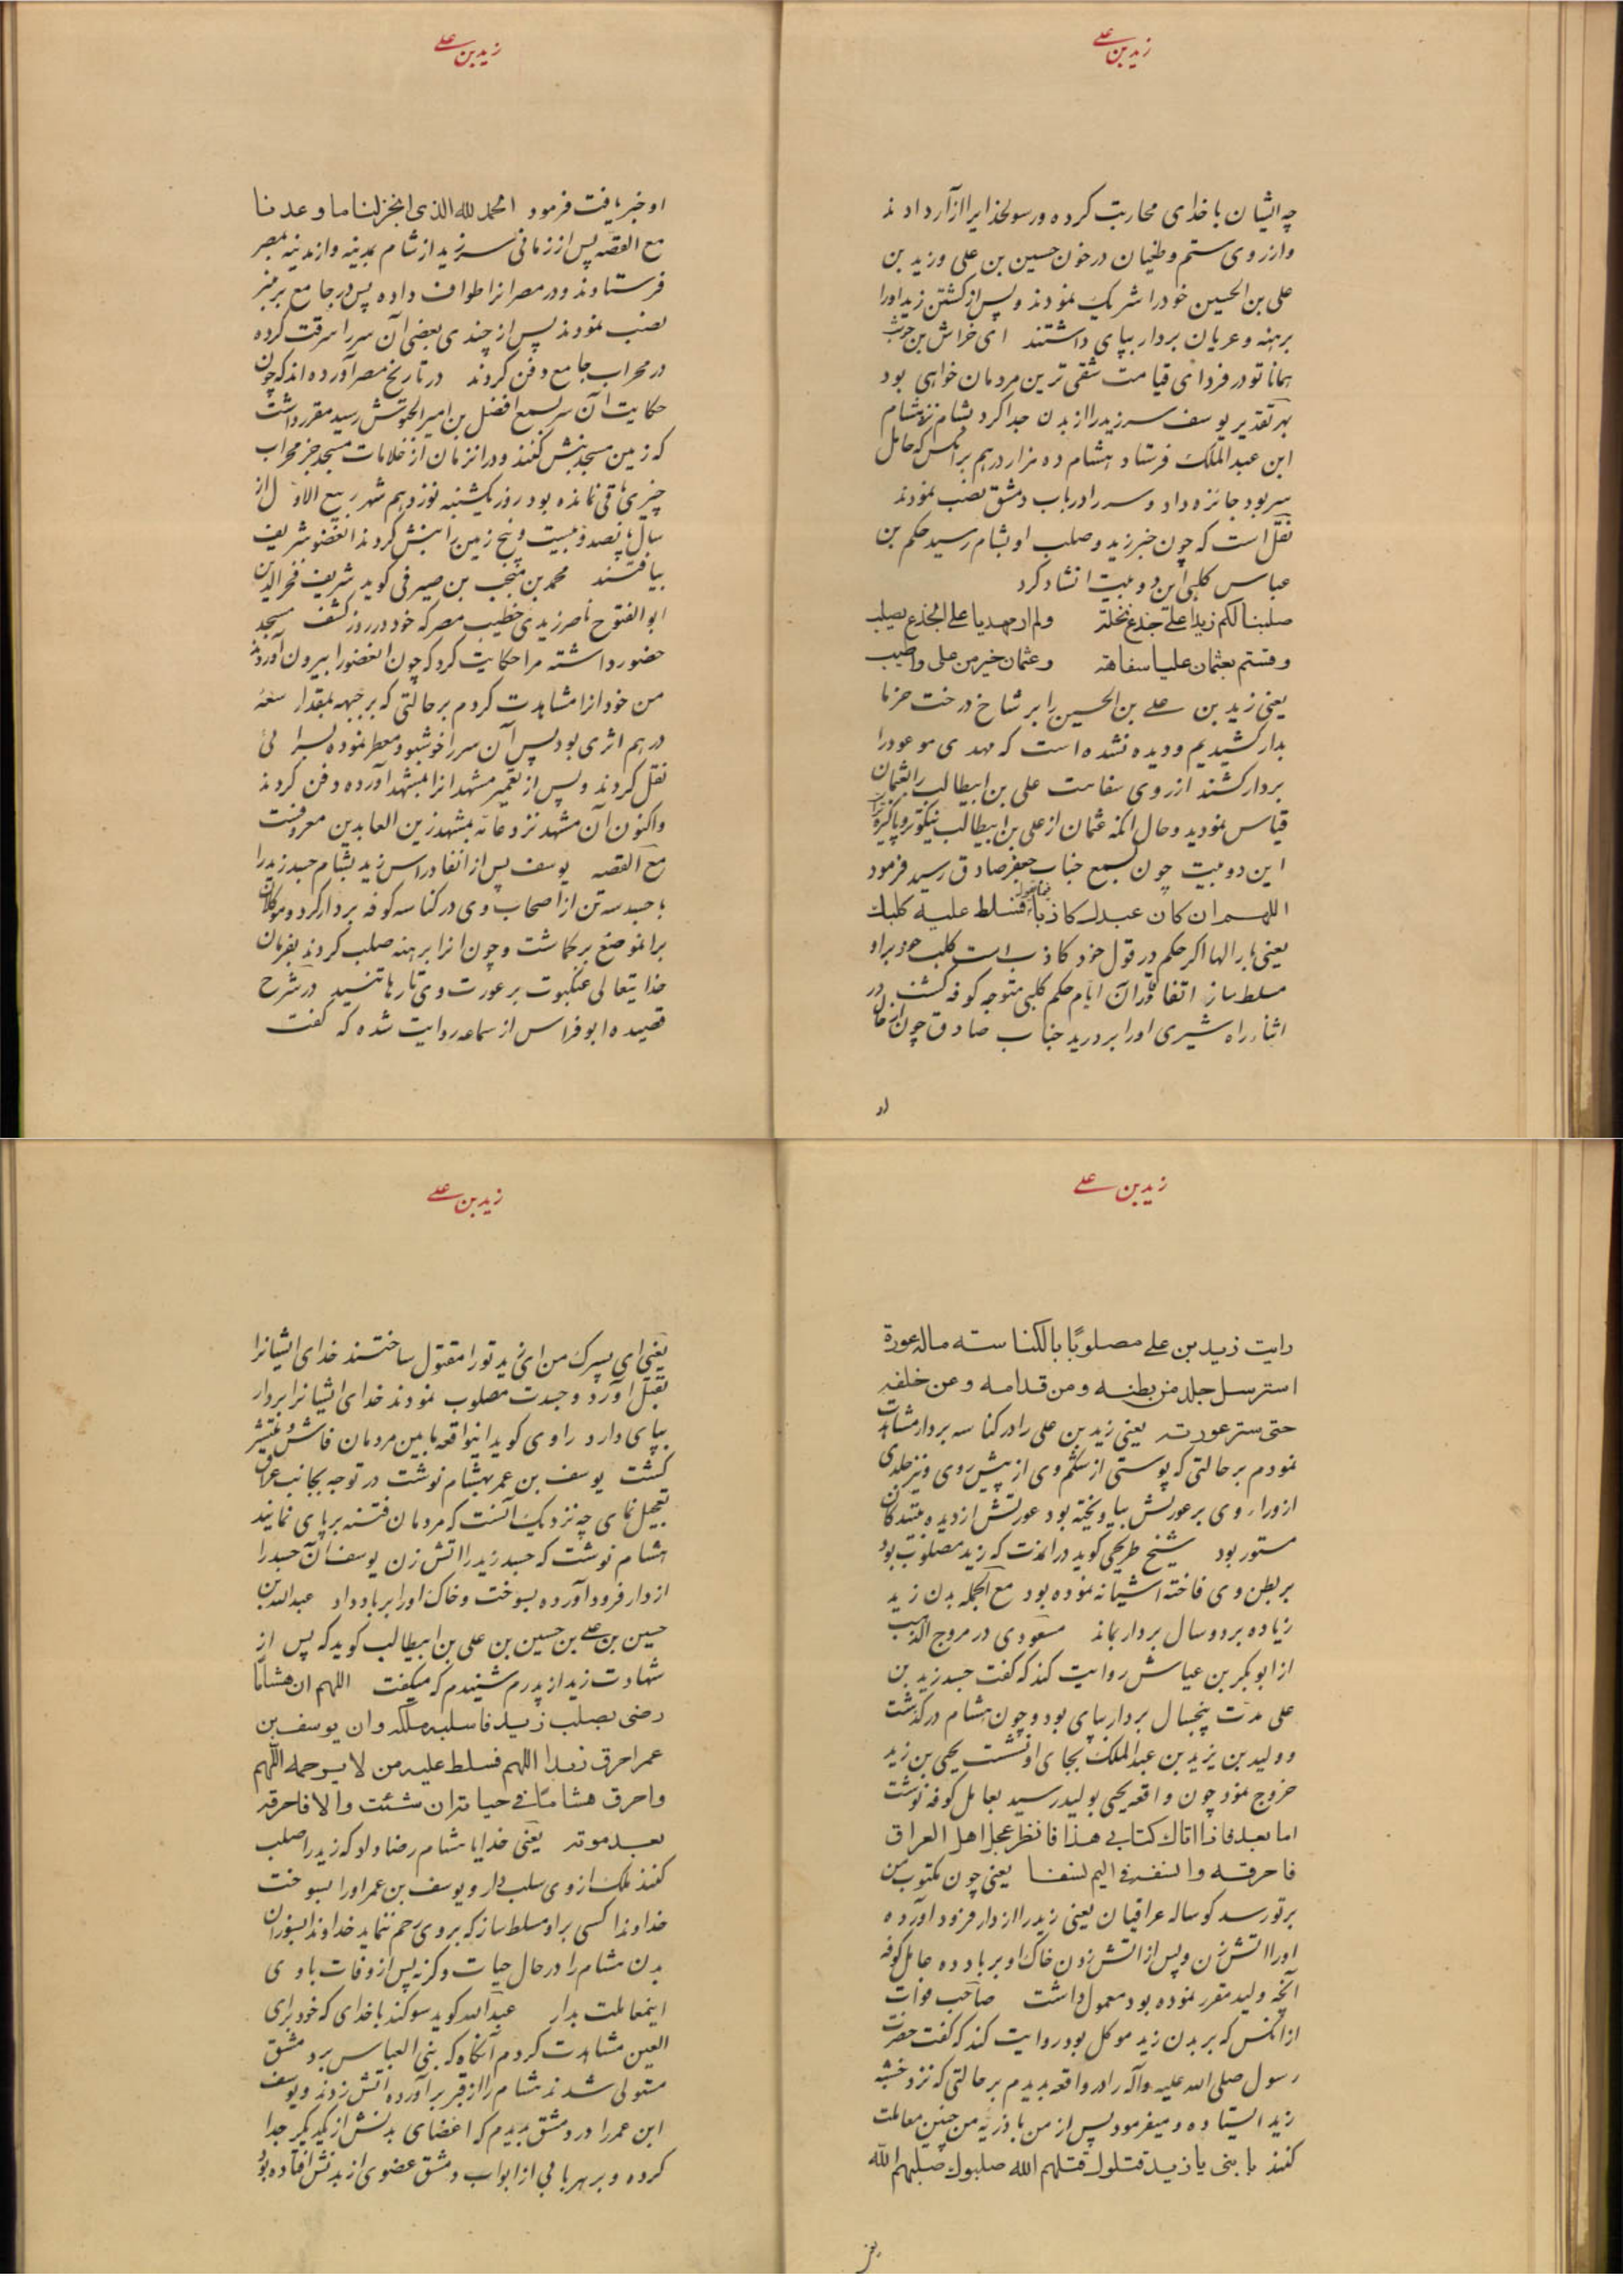 زید بن علی
چه ایشان با خدای محاربت کرده ورسولخدایرا ازآر دادند
واز روی ستم وطغیان در خون حسین بن علی وزید بن
علی بن الحسین خود را شریک نمودند وپس از کشتن زید اورا
برهنه وعریان بردار بپای داشتند ای خراش بن حوشب
همانا تو در فردای قیامت شقی ترین مردمان خواهی بود
بهر تقدیر یوسف سر زید را از بدن جدا کرد بشام نزد هشام
ابن عبد الملک فرستاد هشام ده هزار درهم برانکس که حامل
سر بود جائزه داد وسر را در باب دمشق نصب نمودند
نقل است که چون خبر زید وصلب او بشام رسید حکم بن
عباس کلبی این دو بیت انشاد کرد
صلبنا لکم زیدا علی جذع نخلة ولم ار مهدیا علی الجذع یصلب
وقستم بعثمان علیا سفاهة وعثمان خیر من علی واطیب
یعنی زید بن علی بن الحسین را بر شاخ درخت خرما
بدار کشیدیم ودیده نشده است که مهدی موعود را
بردار کشند از روی سفاهت علی بن ابیطالب را بعثمان
قیاس نمودید وحال آنکه عثمان از علی بن ابیطالب نیکوتر وپاکیزه تر
این دو بیت چون بسمع جناب جعفر صادق رسید فرمود
اللهم ان کان عبدك کاذبا فیما یقول فسلط علیه کلبك
یعنی بار الها اگر حکم در قول خود کاذب است کلب خود بر او
مسلط ساز اتفاقا در آن ایام حکم کلبی متوجه کوفه گشت در
اثناء راه شیری اورا بر درید جناب صادق چون از حال
او
زید بن علی
او خبر یافت فرمود الحمد لله الذی انجز لنا ما وعدنا
مع القصه پس از زمانی سر زید از شام بمدینه واز مدینه بمصر
فرستادند ودر مصر انرا طواف داده پس در جامع بر منبر
نصب نمودند پس از چندی بعضی آن سر را سرقت کرده
در محراب جامع دفن کردند در تاریخ مصر آورده اند که چون
حکایت آن سر بسمع افضل بن امیر الجیوش رسید مقرر داشت
که زمین مسجد نبش کنند ودر انزمان از علامات مسجد جز محراب
چیزی باقی نمانده بود روز یکشنبه نوزدهم شهر ربیع الاول از
سال پانصد وبیست وپنج زمین را نبش کردند انعضو شریف
بیافتند محمد بن منجب بن صیرفی گوید شریف فخر الدین
ابو الفتوح ناصر زیدی خطیب مصر که خود در روز کشف مسجد
حضور داشته مرا حکایت کرد که چون انعضو را بیرون آوردند
من خود انرا مشاهدت کردم بر حالتی که بر جبهه بمقدار سعه
درهم اثری بود پس آن سر را خوشبو ومعطر نموده بسرائی
نقل کردند وپس از تعمیر مشهد انرا بمشهد آورده دفن کردند
واکنون آن مشهد نزد عامه بمشهد زین العابدین معروفست
مع القصه یوسف پس از انفاد راس زید بشام جسد زید را
با جسد سه تن از اصحاب وی در کناسه کوفه بردار کرد وموکلان
بر انموضع برگماشت وچون انرا برهنه صلب کردند بفرمان
خدایتعالی عنکبوت بر عورت وی تارها تنسید در شرح
قصیده ابو فراس از سماعه روایت شده که گفت
زید بن علی
رایت زید بن علی مصلوبًا بالکناسته ماله عورة
استرسل جلد من بطنه ومن قدامه وعن خلفه
حتی ستر عورته یعنی زید بن علی را در کناسه بردار مشاهدت
نمودم بر حالتی که پوستی از شکم وی از پیش روی ونیز جلدی
از وراء روی بر عورتش بیاویخته بود عورتش از دیده بینندکان
مستور بود شیخ طریحی گوید در المدت که زید مصلوب بود
بر بطن وی فاخته اشیانه نموده بود مع الجمله بدن زید
زیاده بر دو سال بردار بماند مسعودی در مروج الذهب
از ابو بکر بن عیاش روایت کند که گفت جسد زید بن
علی مدت پنجسال بردار بپای بود وچون هشام درگذشت
وولید بن یزید بن عبد الملک بجای او نشست یحیی بن زید
خروج نمود چون واقعه یحیی بولید رسید بعامل کوفه نوشت
اما بعد فاذا اتاك کتابی هذا فانظر عجل اهل العراق
فاحرقه وانسفه فی الیم نسفا یعنی چون مکتوب من
بر تو رسد گوساله عراقیان یعنی زید را از دار فرود آورده
اورا اتش زن وپس از اتش زدن خاک او بر باد ده عامل کوفه
آنچه ولید مقرر نموده بود معمول داشت صاحب فوات
از انکس که بر بدن زید موکل بود روایت کند که گفت حضرت
رسول صلی الله علیه وآله را در واقعه بدیدم بر حالتی که نزد خشبه
زید ایستاده ومیفرمود پس از من با ذریه من چنین معاملت
کنند یا بنی یا زید قتلوك قتلهم الله صلبوك صلبهم الله
یعنی
زید بن علی
یعنی ای پسرک من ای زید تورا مقتول ساختند خدای ایشانرا
بقتل آورد وجسدت مصلوب نمودند خدای ایشانرا بردار
بپای دارد راوی گوید اینواقعه ما بین مردمان فاش ومنتشر
گشت یوسف بن عمر بهشام نوشت در توجه بجانب عراق
تعجیل نمای چه نزدیک آنست که مردمان فتنه بر پای نمایند
هشام نوشت که جسد زید را اتش زن یوسف آن جسد را
از دار فرود آورده بسوخت وخاک اورا بر باد داد عبدالله بن
حسین بن علی بن حسین بن علی بن ابیطالب گوید که پس از
شهادت زید از پدرم شنیدم که میگفت اللهم ان هشاما
رضی بصلب زید فاسلبه ملکه وان یوسف بن
عمر احرق زیدا اللهم فسلط علیه من لا یرحمه اللهم
واحرق هشاما فی حیاته ان شئت والا فاحرقه
بعد موته یعنی خدایا هشام رضا داد که زید را صلب
کنند ملک از وی سلب دار ویوسف بن عمر اورا بسوخت
خداوندا کسی بر او مسلط ساز که بر وی رحم ننماید خداوندا بسوزان
بدن هشام را در حال حیات وگرنه پس از وفات با وی
اینمعاملت بدار عبدالله گوید سوگند با خدای که خود برای
العین مشاهدت کردم آنگاه که بنی العباس بر دمشق
متولی شدند هشام را از قبر برآورده اتش زدند ویوسف
ابن عمر را در دمشق بدیدم که اعضای بدنش از یکدیگر جدا
کرده وبر هر بابی از ابواب دمشق عضوی از بدنش افتاده بود